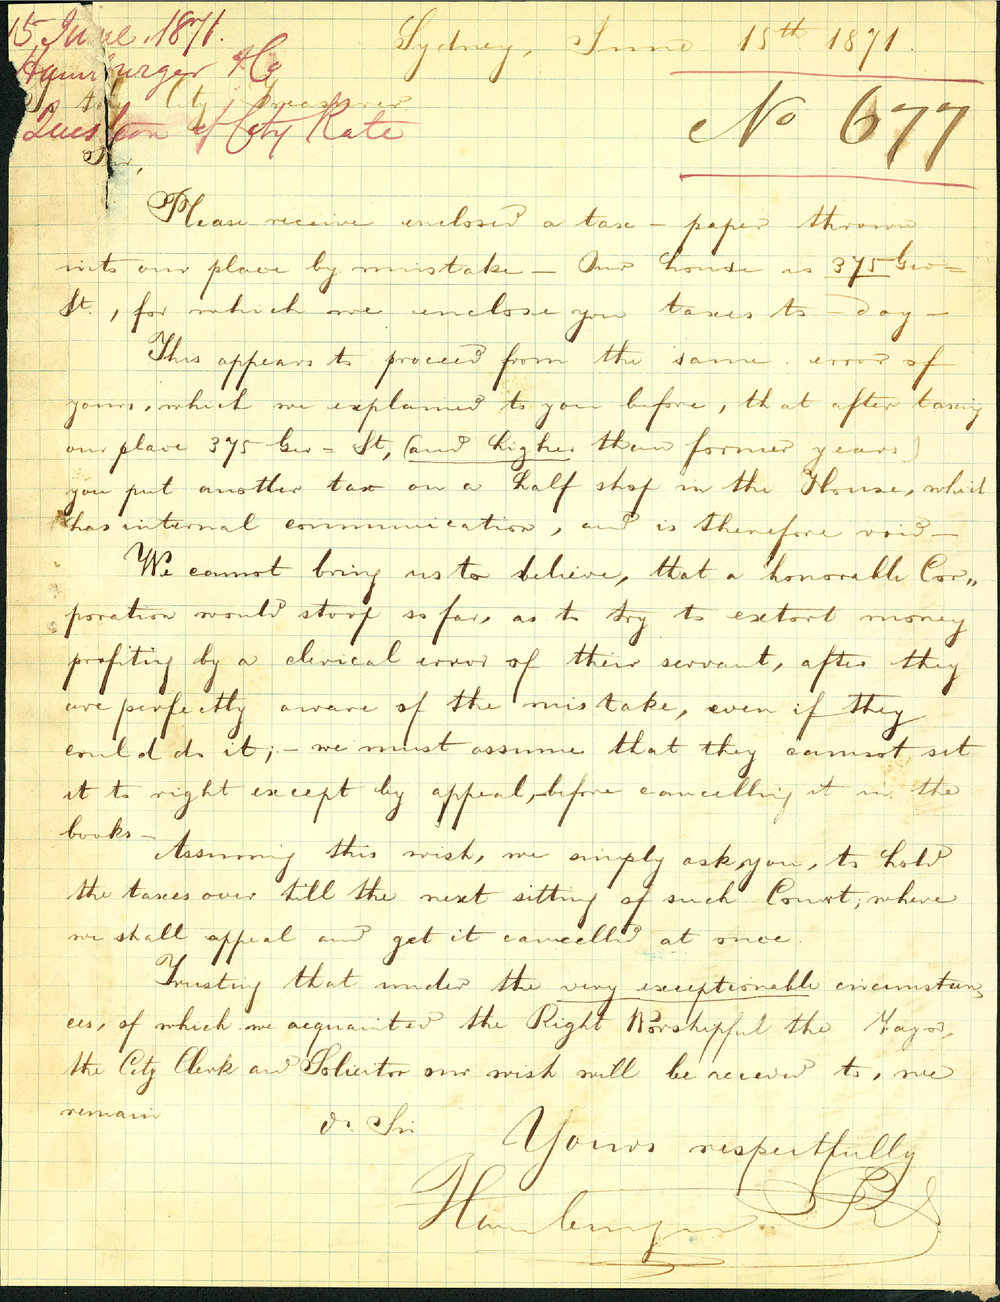 15 June. 1871.
Hamburger & Co
Question of City Rate
Sydney, June 15th 1871
No 677
City Treasurer
Sir,
Please receive enclosed a tax - paper thrown
into our place by mistake - Our house is 375 Geo=
St., for which we enclose you taxes to-day -
This appears to proceed from the same error of
yours, which we explained to you before, that after taxing
our place 375 Geo - St, (and higher than former years)
you put another tax on a half shop in the House, which
has internal communication, and is therefore void -
We cannot bring us to believe, that a honorable Cor„
poration would stoop so far, as to try to extort money
profiting by a clerical error of their servant, after they
are perfectly aware of the mistake, even if they
could do it; - we must assume that they cannot set
it to right except by appeal, before cancelling it in the
books -
Assuming this wish, we simply ask you, to hold
the taxes over till the next sitting of such Court; where
we shall appeal and get it cancelled at once.
Trusting that under the very exceptionable circumstan,
ces, of which we acquainted the Right Worshipful the Mayor,
the City Clerk and Solicitor our wish will be acceeded to, we
remain
Dr. Sir
Yours respectfully
Hamburger